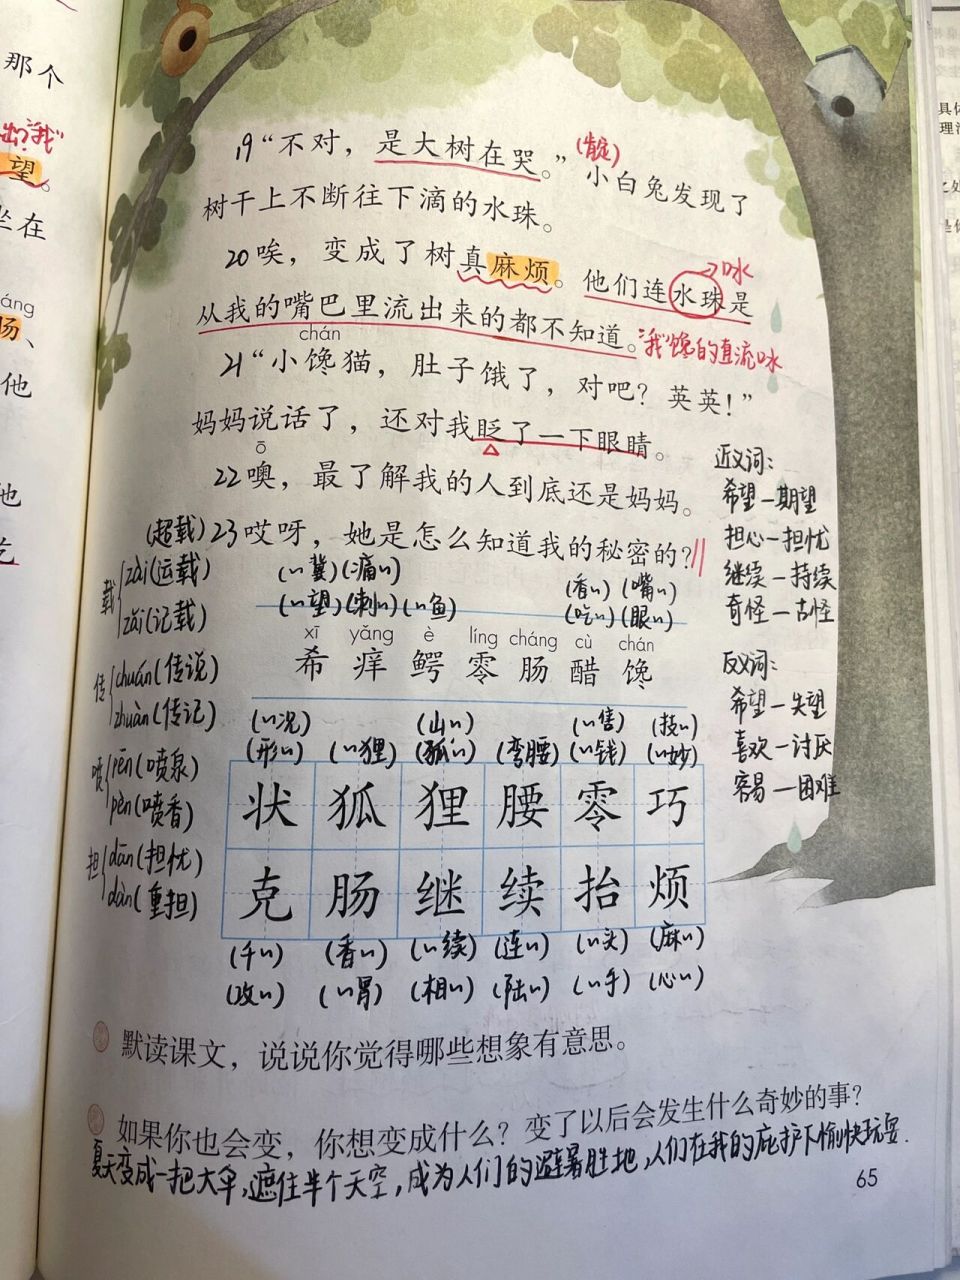 那个
出?"我"
望。
坐在
áng
肠、
他
他
19 "不对，是大树在哭。" 小白兔发现了
树干上不断往下滴的水珠。
20 唉，变成了树真麻烦。他们连水珠是
口水
从我的嘴巴里流出来的都不知道。
"我"馋的直流口水
chán
21 "小馋猫，肚子饿了，对吧？英英！"
妈妈说话了，还对我眨了一下眼睛。
ō
22 噢，最了解我的人到底还是妈妈。
(超载) 23 哎呀，她是怎么知道我的秘密的？
载 zài(运载)
zǎi(记载)
传 chuán(传说)
zhuàn(传记)
喷 pēn(喷泉)
pèn(喷香)
担 dān(担忧)
dàn(重担)
近义词：
希望—期望
担心—担忧
继续—持续
奇怪—古怪
反义词：
希望—失望
喜欢—讨厌
容易—困难
(〃冀) (痛〃) (香〃) (嘴〃)
(〃望) (刺〃) (〃鱼) (吃〃) (眼〃)
xī yǎng è líng cháng cù chán
希 痒 鳄 零 肠 醋 馋
(〃况) (山〃) (〃售) (技〃)
(形〃) (〃狸) (狐〃) (弯腰) (〃钱) (〃妙)
状 狐 狸 腰 零 巧
克 肠 继 续 抬 烦
(千〃) (香〃) (〃续) (连〃) (〃头) (麻〃)
(攻〃) (〃胃) (相〃) (陆〃) (〃手) (心〃)
默读课文，说说你觉得哪些想象有意思。
如果你也会变，你想变成什么？变了以后会发生什么奇妙的事？
夏天变成一把大伞，遮住半个天空，成为人们的避暑胜地，人们在我的庇护下愉快玩耍.
65